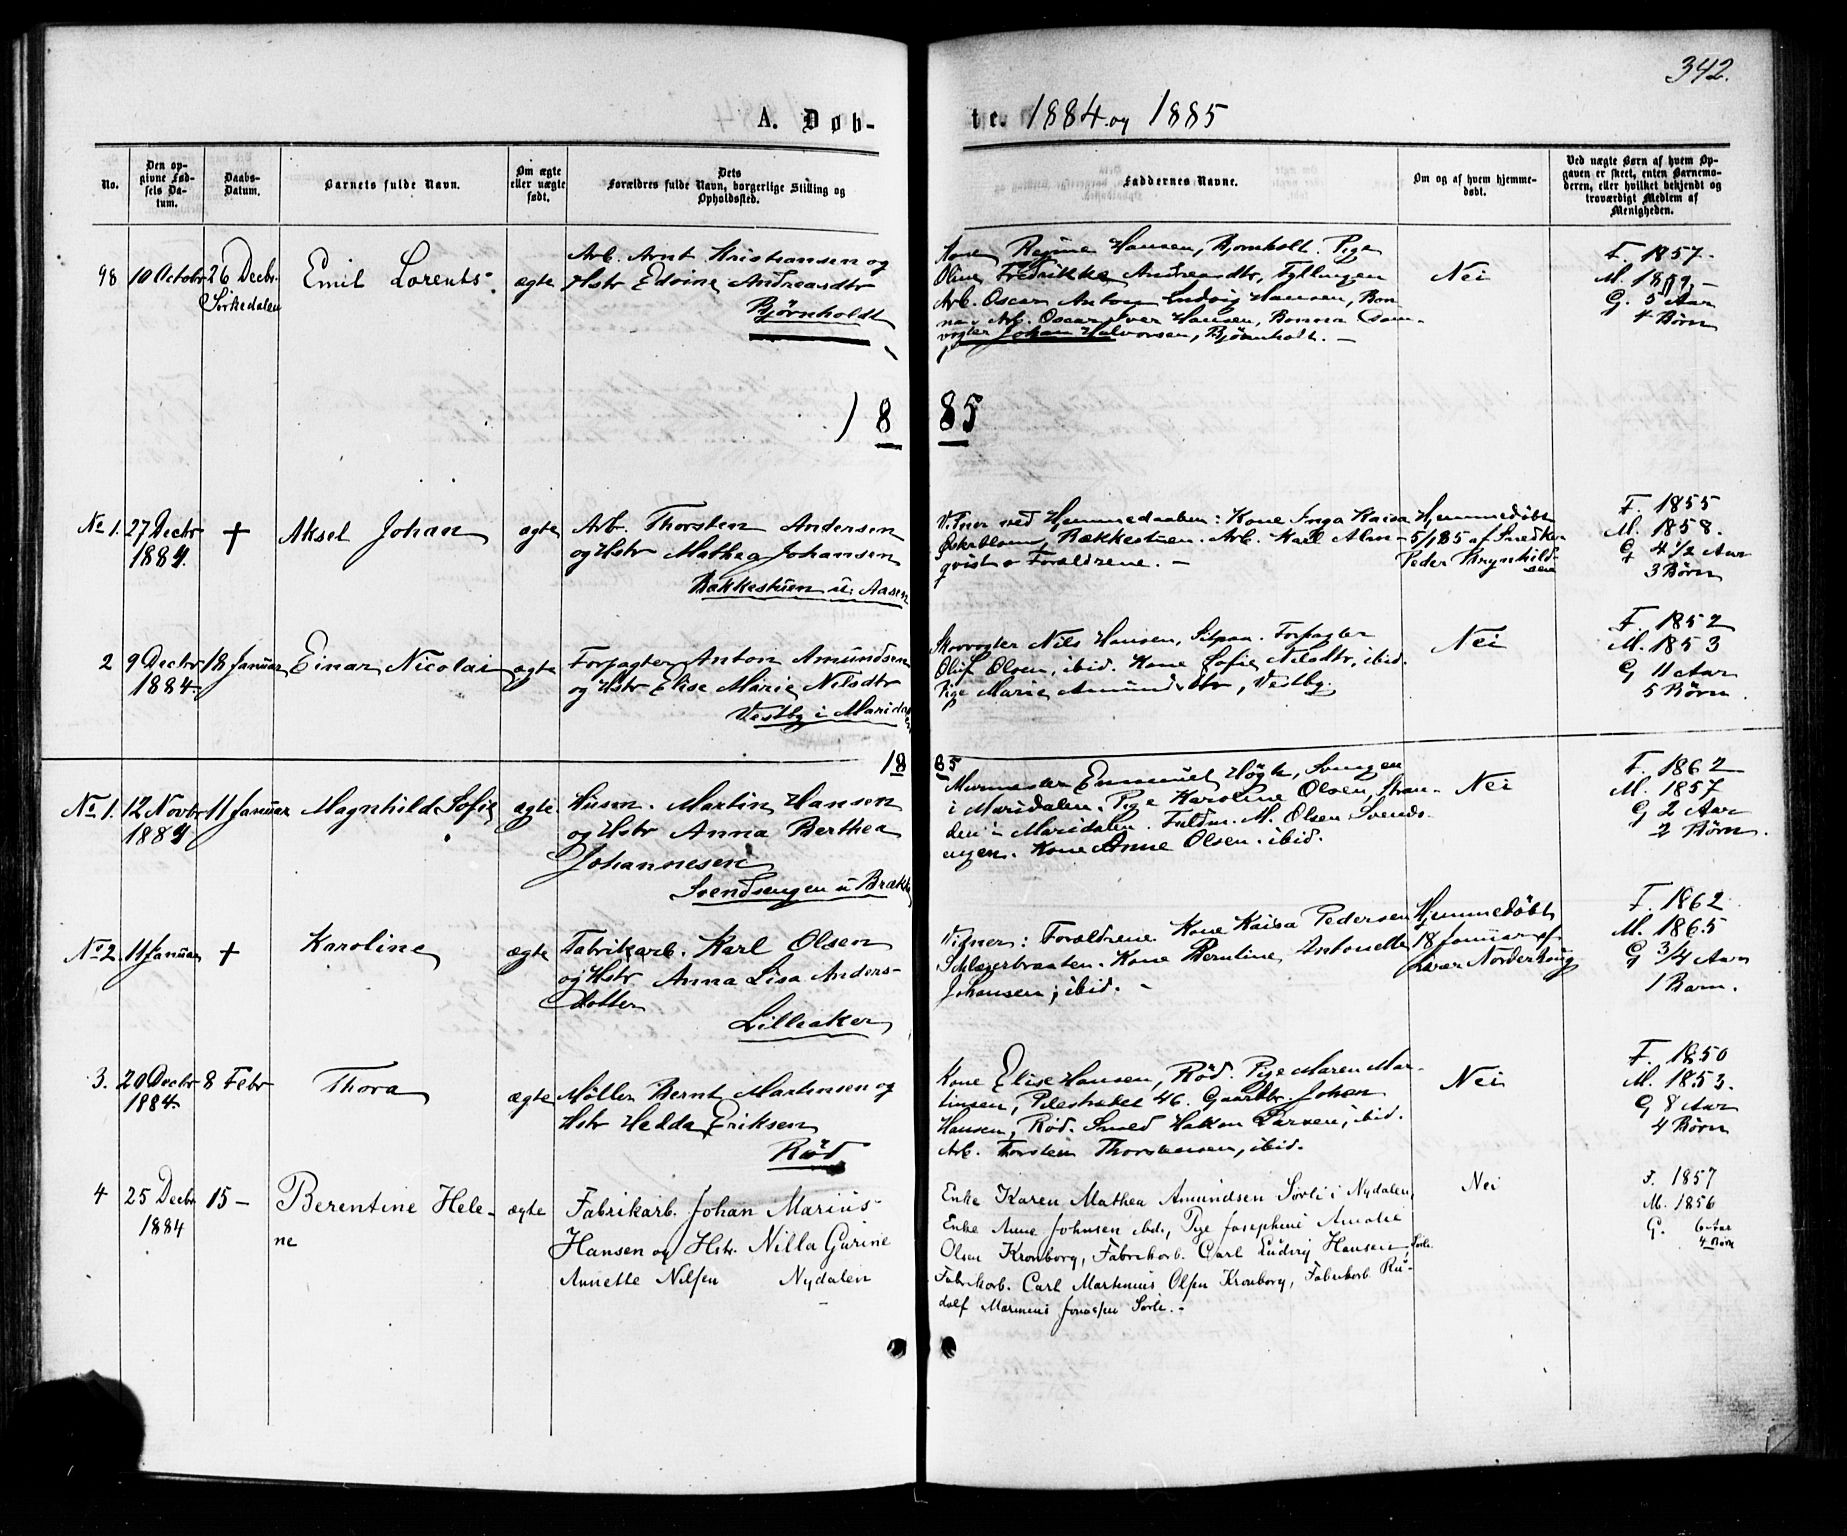 342.
A. Døb-
te. 1884 og 1885
No.
Den op-
givne Fød-
sels Da-
tum.
Daabs-
Datum.
Barnets fulde Navn.
Om ægte
eller uægte
født.
Dets
Forældres fulde Navn, borgerlige Stilling og
Opholdssted.
Faddernes Navne.
Om og af hvem hjemme-
døbt.
Ved uægte Børn af hvem Op-
gaven er skeet, enten Barnemo-
deren, eller hvilket bekjendt og
troværdigt Medlem af
Menigheden.
98
10 Octobr
26 Decbr
Sørkedalen
Emil Lorents.
ægte
Arb. Arnt Kristiansen og
Hstr Edvine Andreasdtr
Bjørnholdt
Kone Regine Hansen, Bjørnholt. Pige
Oline Fredrikke Andreasdtr, Fyllingen
Arb. Oscar Anton Ludvig Hansen, Bon-
na. Arb. Oscar Iver Hansen, Bonna Dam-
vogter Johan Halvorsen, Bjørnholt. —
Nei
F. 1857.
G. 5 Aar
4 Børn
18
85
No 1.
27 Decbr
1884.
†
Aksel Johan
ægte
Arb. Thorsten Andersen
og Hstr Mathea Johansen
Bakkestuen u. Aasen
Vidner ved Hjemmedaaben: Kone Inga Kaisa
Bakkestuen. Arb. Karl Alm-
qvist o Forældrene. —
Hjemmedøbt
5/1 85 af Snedker
Peder Brynhild-
sen
F. 1855
M. 1858.
G 4 1/2 Aar
3 Børn
2
9 Decbr
1884.
18 Januar
Einar Nicolai
ægte
Forpagter Anton Amundsen
og Hstr Elise Marie Nilsdtr
Vestby i Maridalen
Skovvogter Nils Hansen, Forpagter
Oluf Olsen, ibid. Kone Sofie Nilsdtr, ibid.
Pige Marie Amundsdtr, Vestby.
Nei
F. 1852
M. 1853
G 11 Aar
5 Børn.
18
85
No 1.
12 Novbr
1884
11 Januar
Magnhild Sofie
ægte
Husm. Martin Hansen
og Hstr Anna Berthea
Johannesen
Svendsengen u Brække
Murmester Emmanuel Høgh, Svingen
i Maridalen. Pige Karoline Olsen, Stran-
den i Maridalen. Fuldm. M. Olsen Svends-
engen. Kone Anne Olsen. ibid.
Nei
F. 1862
M. 1857
G 2 Aar
2 Børn.
No 2.
11 Januar
†
Karoline
ægte
Fabrikarb. Karl Olsen
og Hstr Anna Lisa Anders-
dotter
Lilleaker
Vidner: Forældrene. Kone Kaisa Pedersen
Kone Berntine Antonette
Johansen, ibid. -
Hjemmedøbt
18 Januar af
Iver Norderhoug
F. 1862
M. 1865
G 3/4 Aar
1 Barn.
3.
20 Decbr
1884.
8 Febr
Thora
ægte
Møller Bernt Martinsen og
Hstr Hedda Eriksen
Rød
Kone Elise Hansen, Rød. Pige Maren Mar-
tinsen, Pilestrædet 46. Gaardbr. Johan
Hansen, Rød. Smed Hakon Larsen, ibid.
Arb. Torstein Thorstensen, ibid.
Nei
F. 1850
M. 1853.
G 8 Aar
4 Børn
4
25 Decbr
1884
15 —
Berentine Hele-
ne
ægte
Fabrikarb. Johan Marius
Hansen og Hstr. Nilla Gurine
Annette Nilsen Nydalen
Enke Karen Mathea Amundsen Sørli i Nydalen,
Enke Anne Johnsen ibd., Pige Josephine Amalie
Olsen Kronborg, Fabrikarb. Carl Ludvig Hansen, Sørli.
Fabrikarb. Carl Martinius Olsen Kronborg, Fabrikarb Ru-
dolf Marinius Jonassen Sørli. -
Nei
F. 1857
M. 1856
G. 6 Aar
4 Børn